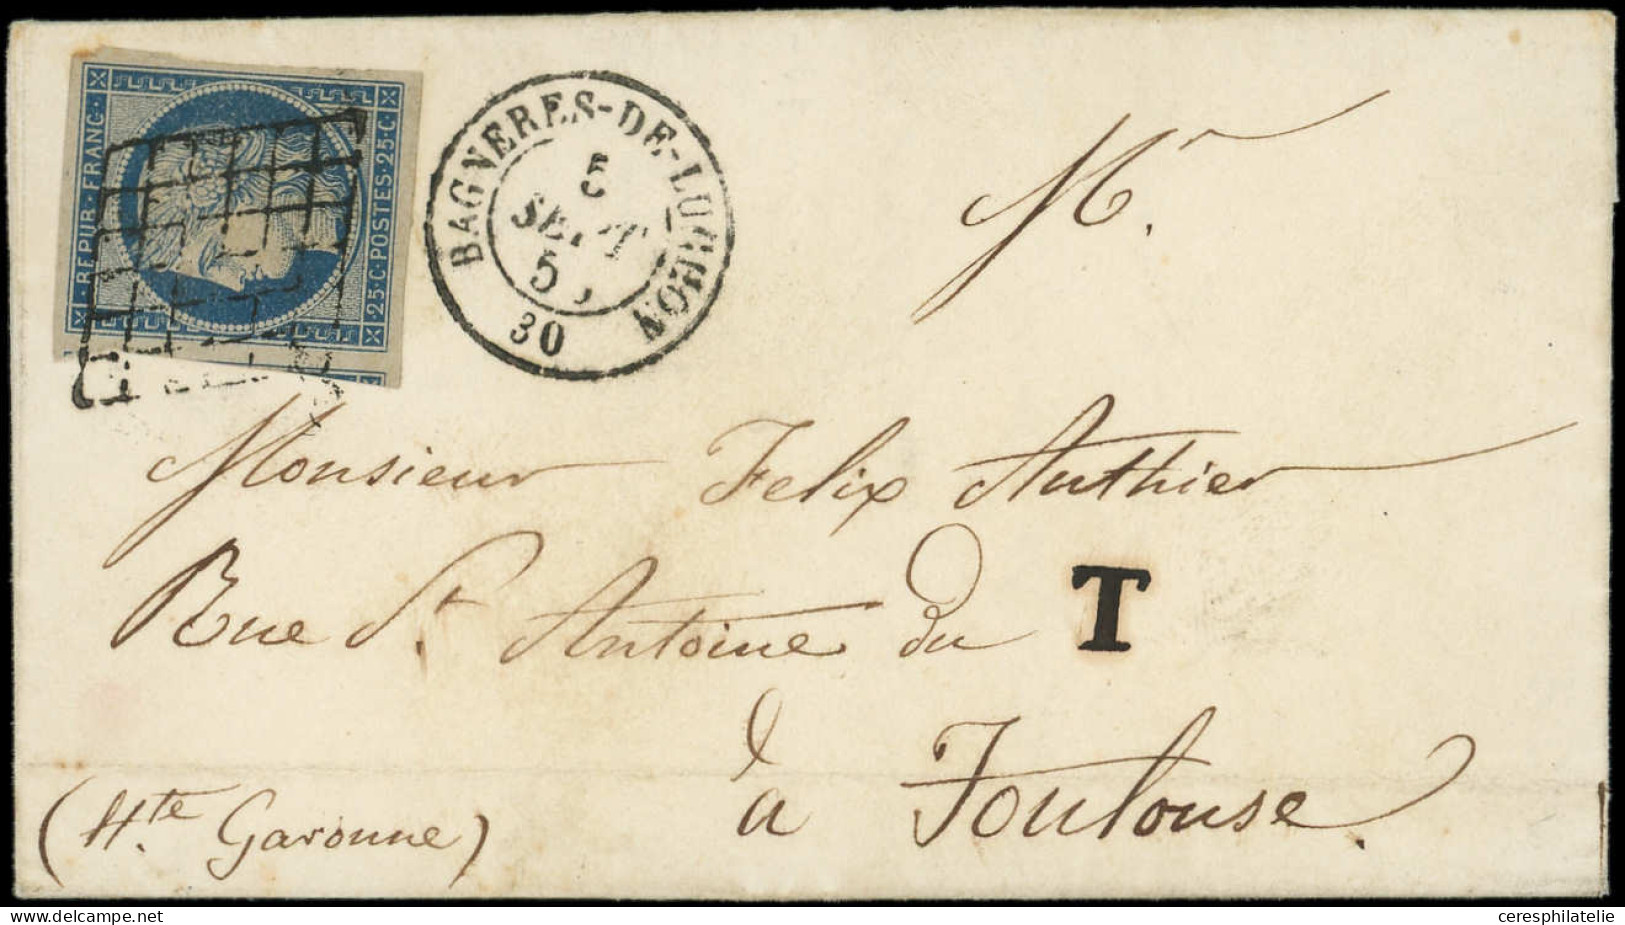 REPUB·FRANC·
25·C·POSTES·25·C·
BAGNERES-DE-LUCHON
5
SEPT
5
30
Mr.
Monsieur Felix Authier
Rue St. Antoine du T
à Toulouse.
(Hte. Garonne)
www.delcampe.net
ceresphilatelie